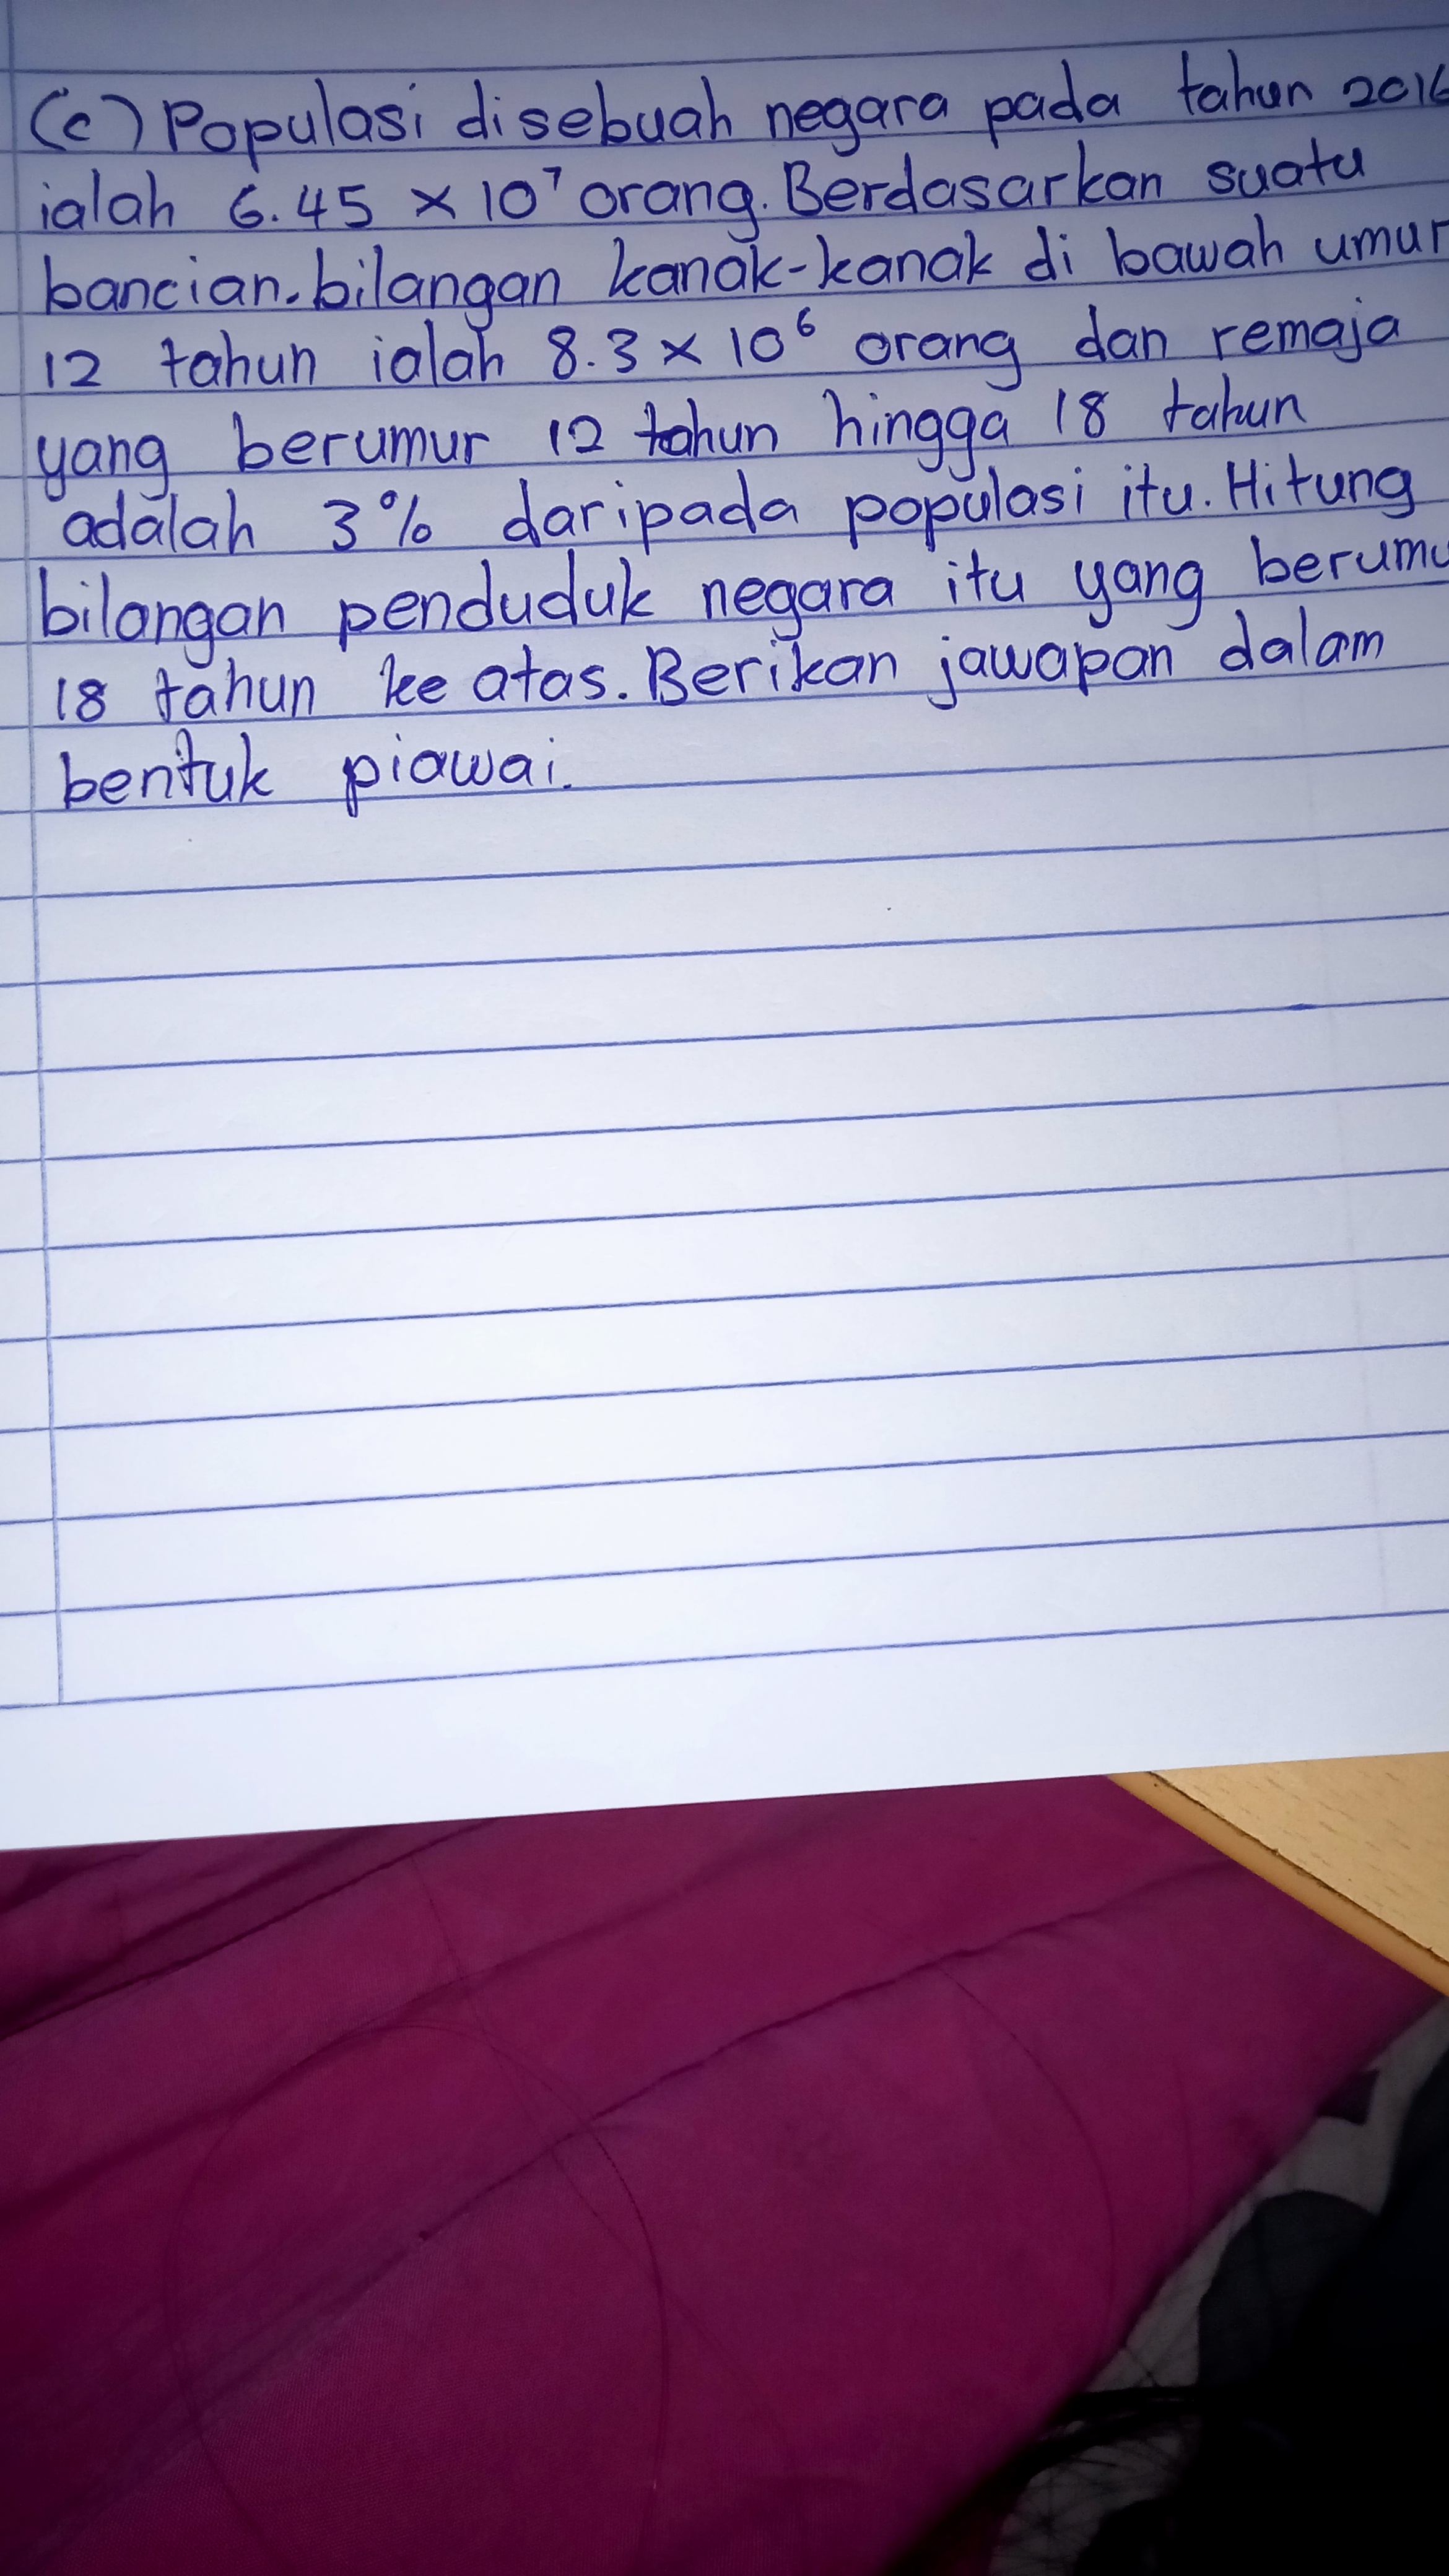 (c) Populasi disebuah negara pada tahun 2016
ialah 6.45 × 10⁷ orang. Berdasarkan suatu
bancian.bilangan kanak-kanak di bawah umur
12 tahun ialah 8.3 × 10⁶ orang dan remaja
yang berumur 12 tahun hingga 18 tahun
adalah 3% daripada populasi itu. Hitung
bilangan penduduk negara itu yang berumu
18 tahun ke atas. Berikan jawapan dalam
bentuk piawai.